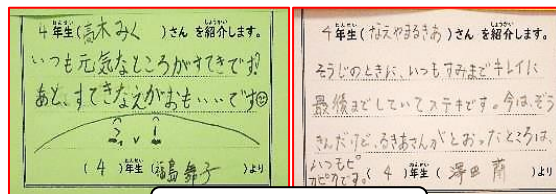 4年生(高木みく)さんを紹介します。
いつも元気なところがすてきです!
あと、すてきなえがおもいいです☺
(4)年生(福島舞子)より
4年生(なえやまるきあ)さんを紹介します。
そうじのときに、いつもすみまでキレイに
最後までしていてステキです。今は、ぞう
きんだけど、るきあさんがとおったところは、
いつもピカピカです。
(4)年生(澤田蘭)より